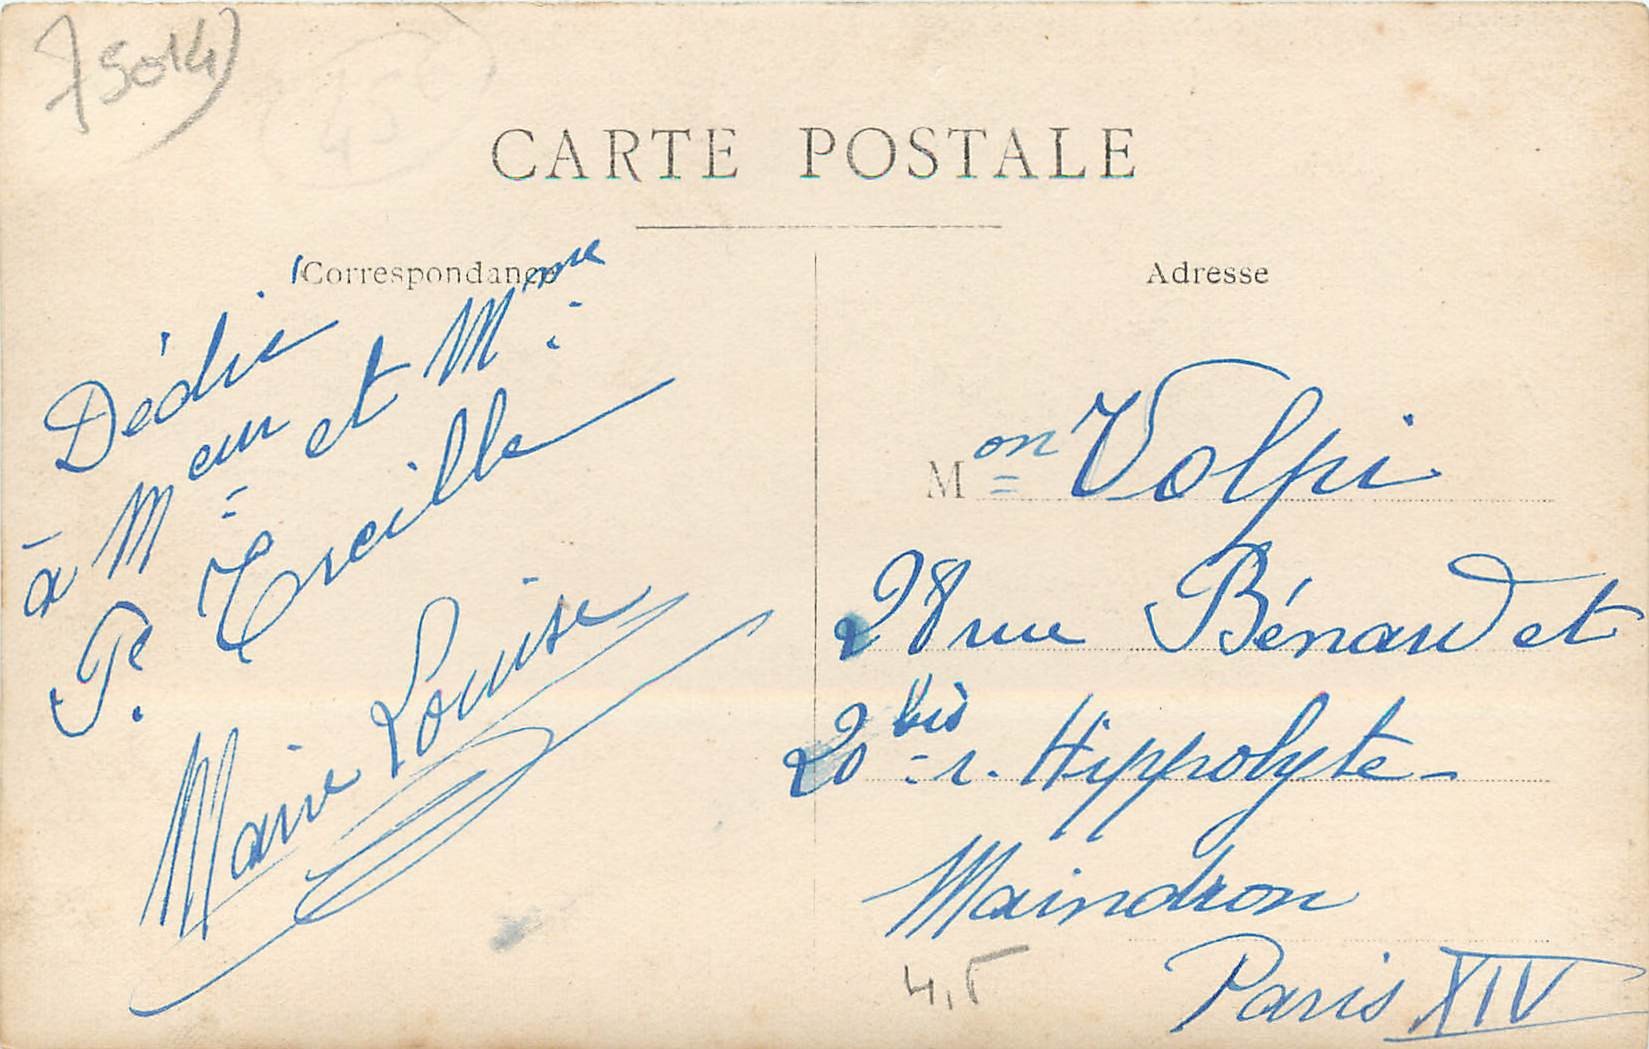 75014
45
CARTE POSTALE
Correspondance
Adresse
Dédié
à Meur et Mme
Pe Treille
Marie Louise
Mon Volpi
28 rue Bénard et
2 bis r. Hippolyte
Maindron
Paris XIV
4,5